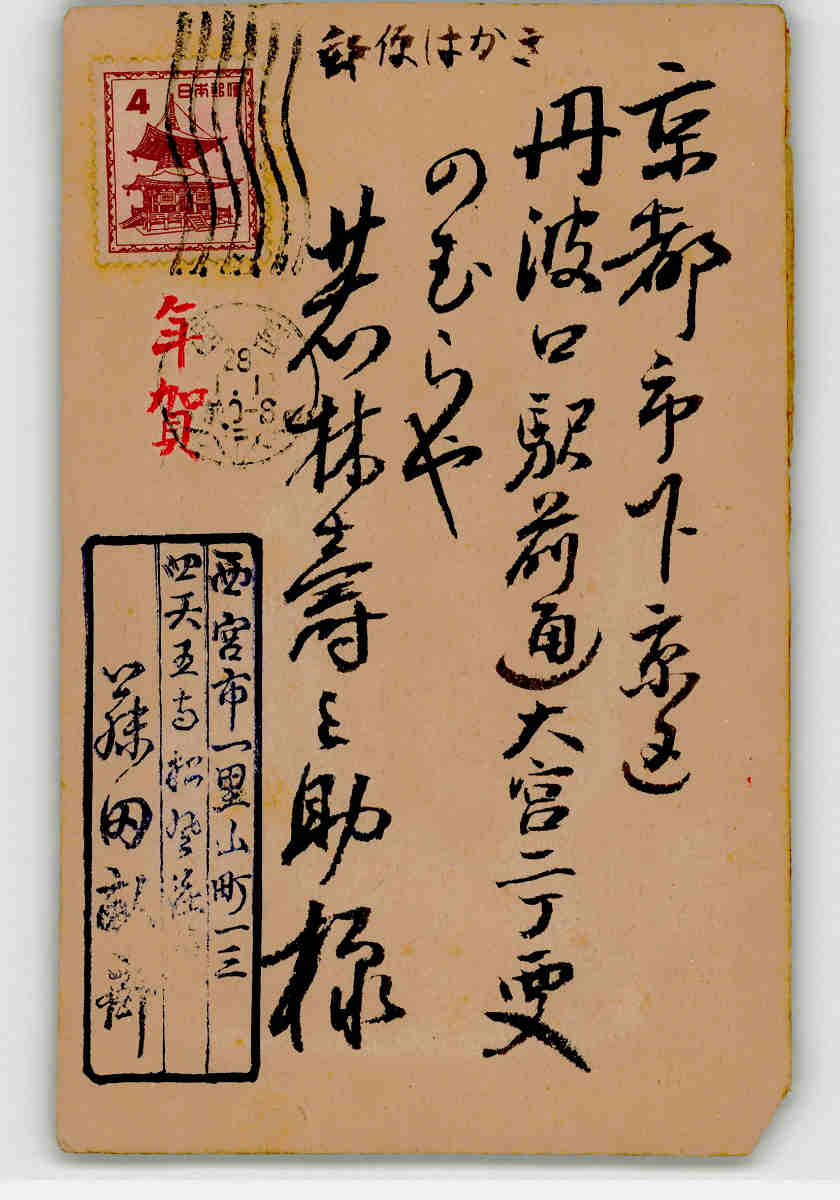 郵便はかき
4
日本郵便
年賀
28
1.1
0-8
京都市下京区
丹波口駅前通大宮二丁東
のむらや
若林壽之助様
西宮市一里山町一三
四天王寺
藤田